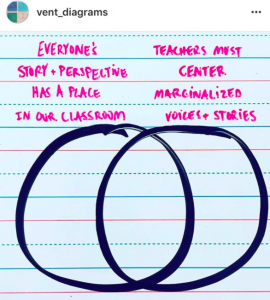 vent_diagrams
EVERYONE'S
STORY + PERSPECTIVE
HAS A PLACE
IN OUR CLASSROOM
TEACHERS MUST
CENTER
MARGINALIZED
VOICES + STORIES